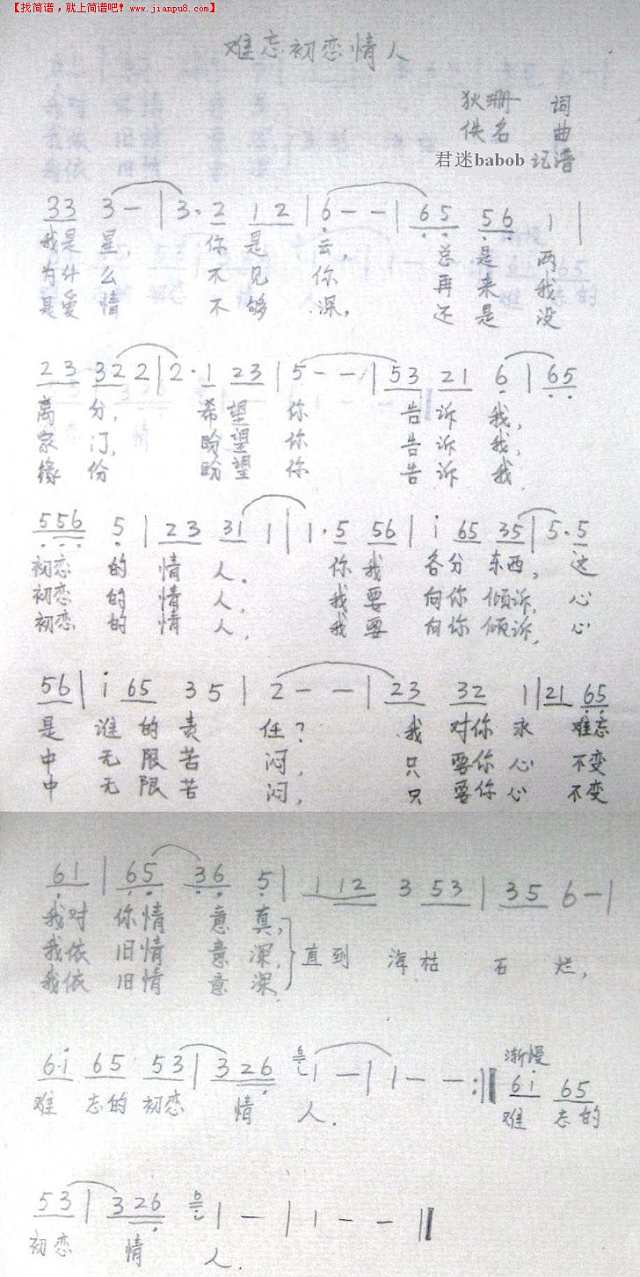 【找简谱，就上简谱吧! www.jianpu8.com】
难忘初恋情人
狄珊 词
佚名 曲
君迷babob 记谱
33 3 — | 3· 2 12 | 6 - - | 65 56 1 |
我是 星， 你 是 云， 总 是 两
为什 么 不 见 你 再 来 我
是爱 情 不 够 深， 还 是 没
23 32 2 | 2· 1 23 | 5 - - | 53 21 6 | 65
离 分， 希 望 你 告 诉 我，
家 门， 盼 望 你 告 诉 我，
缘 份 盼 望 你 告 诉 我
556 5 | 23 31 1 | 1· 5 56 | i 65 35 | 5· 5
初恋 的 情 人． 你 我 各分 东西， 这
初恋 的 情 人， 我 要 向你 倾诉， 心
初恋 的 情 人， 我 要 向你 倾诉， 心
56 | i 65 35 | 2 - - | 23 32 1 | 21 65
是 谁 的 责 任? 我 对你 永 难忘
中 无 限 苦 闷， 只 要你 心 不变
中 无 限 苦 闷， 只 要你 心 不变
61 | 65 36 5 | 1 12 3 53 | 35 6 — |
我对 你情 意 真，
我依 旧情 意 深， 直到 海枯 石 烂，
我依 旧情 意 深
6·i 65 53 | 326 6 1 — | 1 - - :‖ 渐慢 6i 65
难 忘的 初恋 情 人． 难 忘的
53 | 326 6 1 — | 1 - - ‖
初恋 情 人．